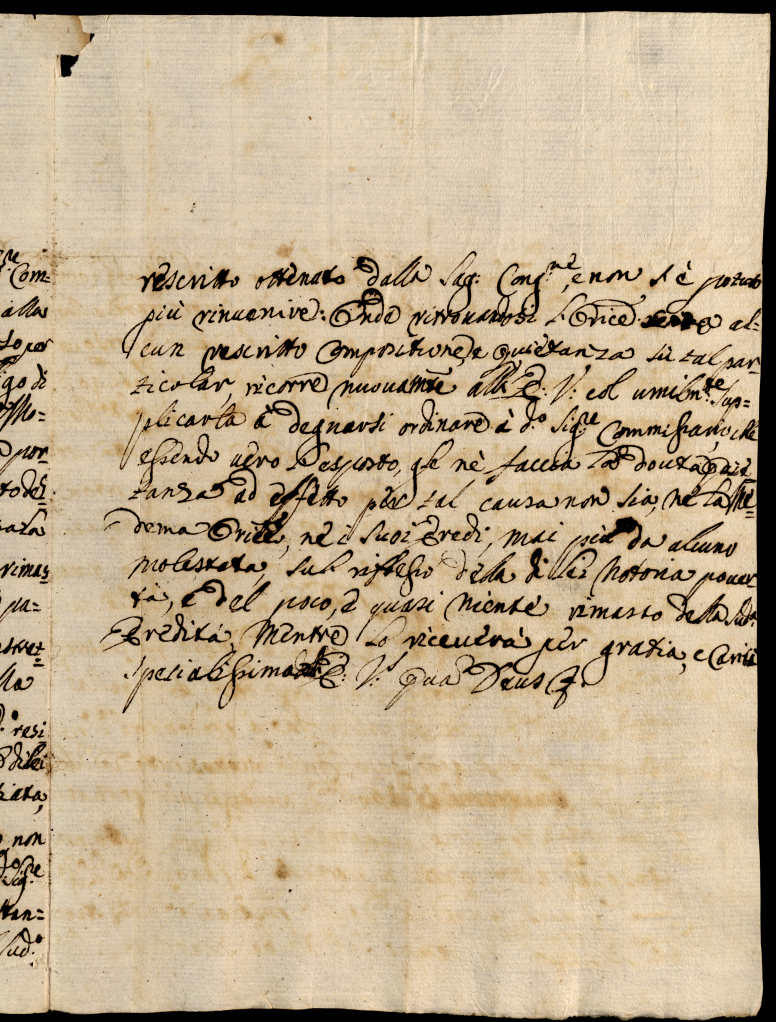 rescritto ottenuto dalla Sag: Cong.ne, e non s'è potuto
più rinuenire: Onde ritrouandosi l'Orice senza al=
cun rescritto compositione, e quietanza sù tal par=
ticolar, ricorre nuouamte all'E: V: col umilm.te Sup=
plicarla à degnarsi ordinare à d.o Sig.re Commissario, che
essendo uero l'esposto, gle nè faccia la douta quie=
tanza ad effetto per tal causa non sia, nè la Me=
dema Orice, nè i Suoi Eredi, mai più da alcuno
molestata, sul riflesso della di lei notoria pouer
tà, e del poco, e quasi niente rimasto della Sud.a
Eredità, Mentre lo riceuerà per gratia, e Carità
specialissima dall'E: V: Quam Deus &.
Com=
alla
to per
go di
Mo=
por=
to del
rimas
pa=
lla
resi
di lei
ziata,
non
Sig.re
tan=
Sud.o